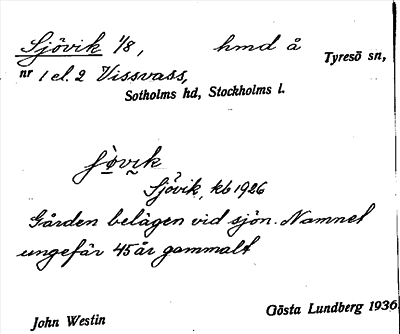 Sjövik 1/8, hmd å Tyresö sn,
nr 1 el. 2 Vissvass,
Sotholms hd, Stockholms l.
Sjövik, kb 1926
Gården belägen vid sjön. Namnet
ungefär 45 år gammalt
John Westin Gösta Lundberg 1936